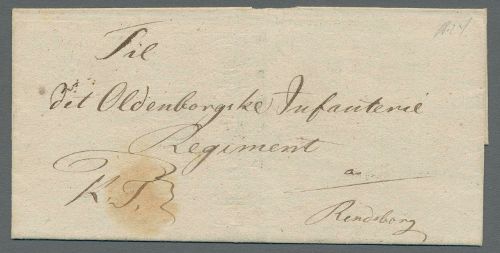 Til
det Oldenborgske Infanterie
Regiment
K. T.
a
Rendsborg